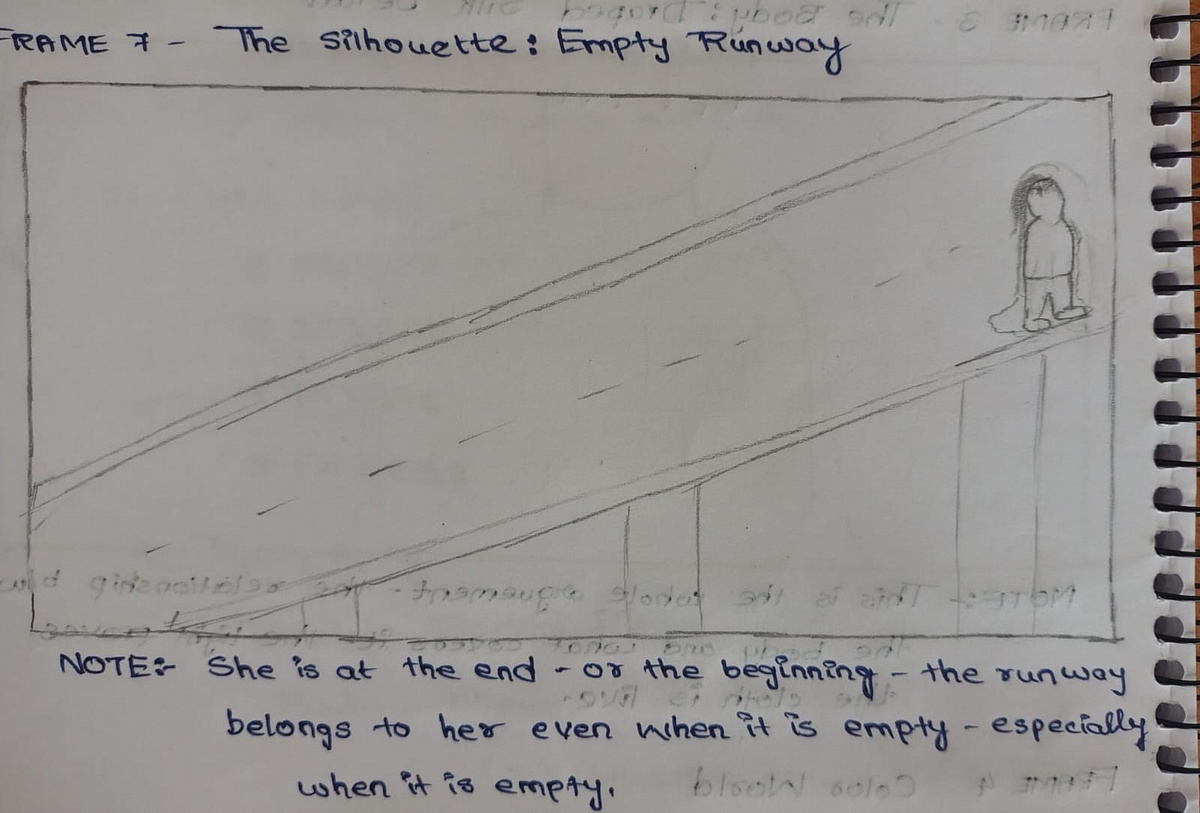 FRAME 7 - The Silhouette: Empty Runway
NOTE:- She is at the end - or the beginning - the runway
belongs to her even when it is empty - especially
when it is empty.